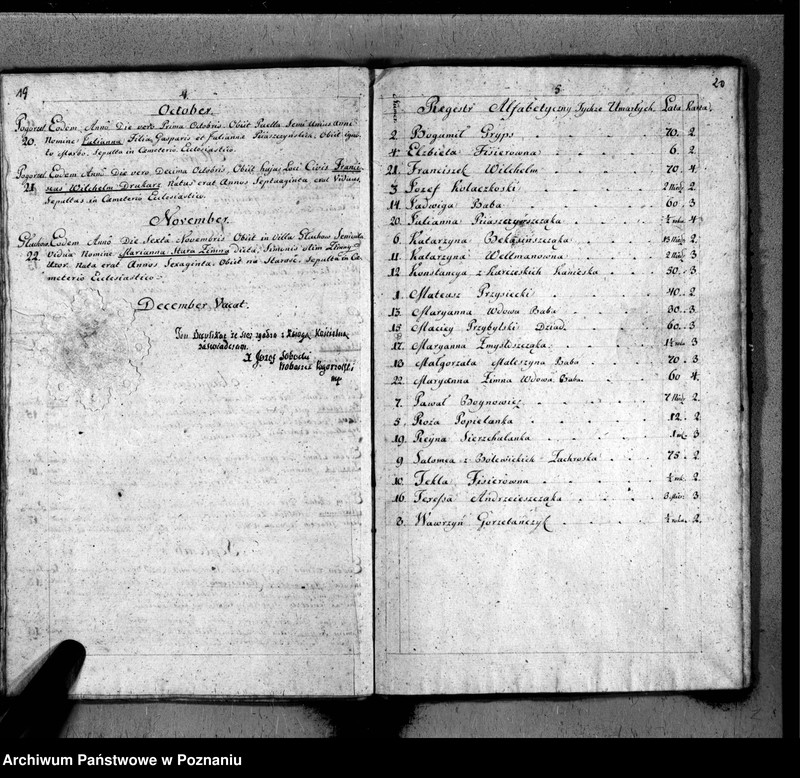 19
4
October.
Pogorzel. Eodem Anno Die vero Prima Octobris Obiit Puella Semi Unius Anni
20. Nomine Julianna Filia Gasparis et Julianna Piaszczyńskich, Obiit Igno-
to Morbo. Sepulta in Cameterio Ecclesiastico.
Pogorzel. Eodem Anno Die vero Decima Octobris, Obiit hujus Loci Civis Francis-
21. cus Wilchelm Drukarz Natus erat Annos Septuaginta, erat Viduus,
Sepultus in Cameterio Ecclesiastico.
November.
Gluchow. Eodem Anno Die Sexta Novembris Obiit in Villa Gluchow Semicula
22. Vidua Nomine Marianna Stara Zimna dicta, Simonis olim Zimny
Uxor. Nata erat Annos Sexaginta, Obiit na Starość. Sepulta in Ca-
meterio Ecclesiastico.
December Vacat.
Ten Duplikat że się zgadza z Xięgą Kościelną
zaświadczam.
X Józef Sobocki
Proboszcz Pogorzelski
mp.
20
5
Regestr Alfabetyczny Tychże Umarłych. Lata. Karta.
2 Bogumił Gryps 70. 2
4 Elżbieta Fisierowna 6. 2
21. Franciszek Wilchelm 70. 4
3 Jozef Kolaczkoski 2
14 Jadwiga Baba 60. 3
20. Julianna Piiaszczyńszcząka ½ roku 4
6. Katarzyna 2.
11 Katarzyna Weltmanowna 3
12 Konstancya z 50. 3
1. Mateusz Przysiecki 40. 2
13. Maryanna Wdowa Baba 30. 3
15 Maciey Przybylski Dziad 60. 3
17. Maryanna Zmyśliszcząka 3
18 Małgorzata Maleszyna Baba 70. 3
22. Maryanna Zimna Wdowa Baba 60 4.
7. Paweł Woynowicz 2
5. Roża Popielanka 12. 2
19. Reyna Sierzchulanka 3
9 Salomea z Bolewickich Zachroska 75. 2
10. Tekla Fisierowna 2.
16. Teressa Andrzeieszcząka 3
8. Wawrzyn Gorzelańczyk ½ roku 2.
Archiwum Państwowe w Poznaniu